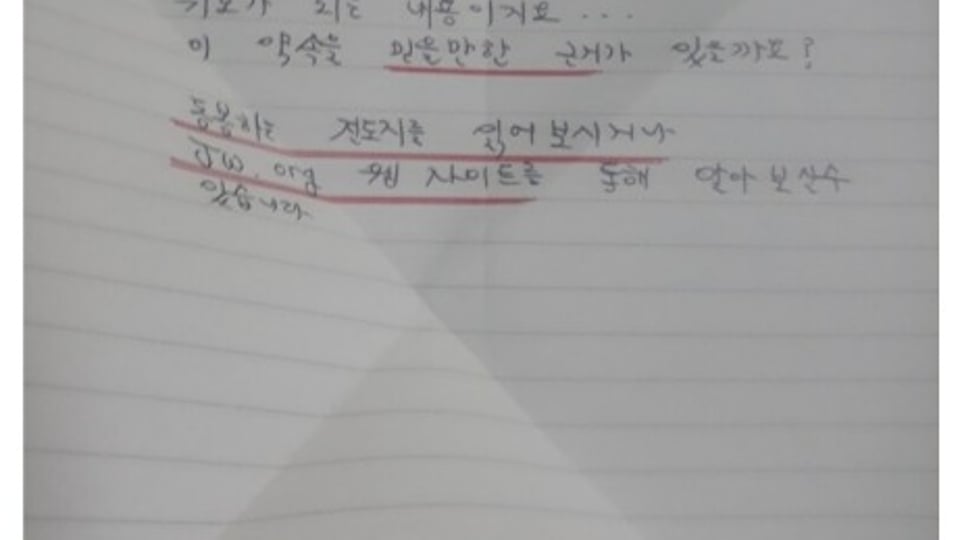 내용이지요...
이 약속을 믿을만한 근거가 있을까요?
동봉하는 전도지를 읽어 보시거나
JW.org 웹 사이트를 통해 알아 보실수
있습니다